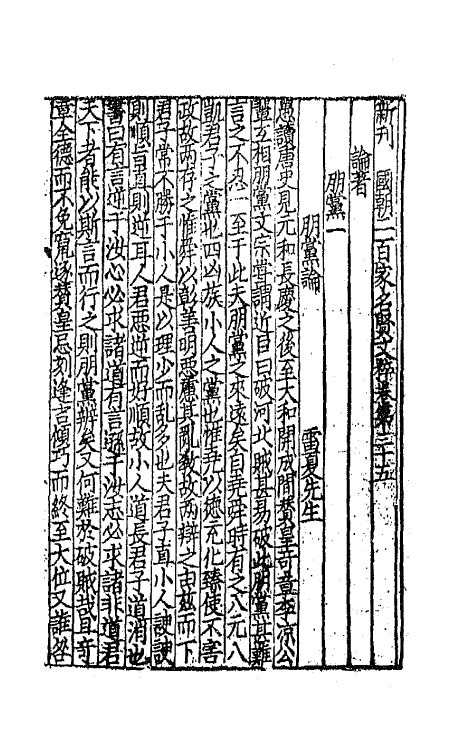 新刊 國朝二百家名賢文粹卷第三十五
論著
朋黨一
朋黨論 雷夏先生
愚讀唐史見元和長慶之後至大和開成間贊皇奇章李涼公
輩互相朋黨文宗嘗謂近臣曰破河北賊甚易破此朋黨甚難
言之不忍一至于此夫朋黨之來遠矣自堯舜時有之八元八
凱君子之黨也四凶族小人之黨也惟堯以德充化臻使不害
政故兩存之惟舜以彰善明惡慮其亂教故兩辯之由茲而下
君子常不勝于小人是以理少而亂多也夫君子直小人諛諛
則順旨直則逆耳人君惡逆而好順故小人道長君子道消也
書曰有言逆于汝心必求諸道有言遜于汝志必求諸非道君
天下者能以斯言而行之則朋黨辨矣又何難於破賊哉且奇
章全德而不免竄逐贊皇忌刻逢吉傾巧而終至大位又誰咎